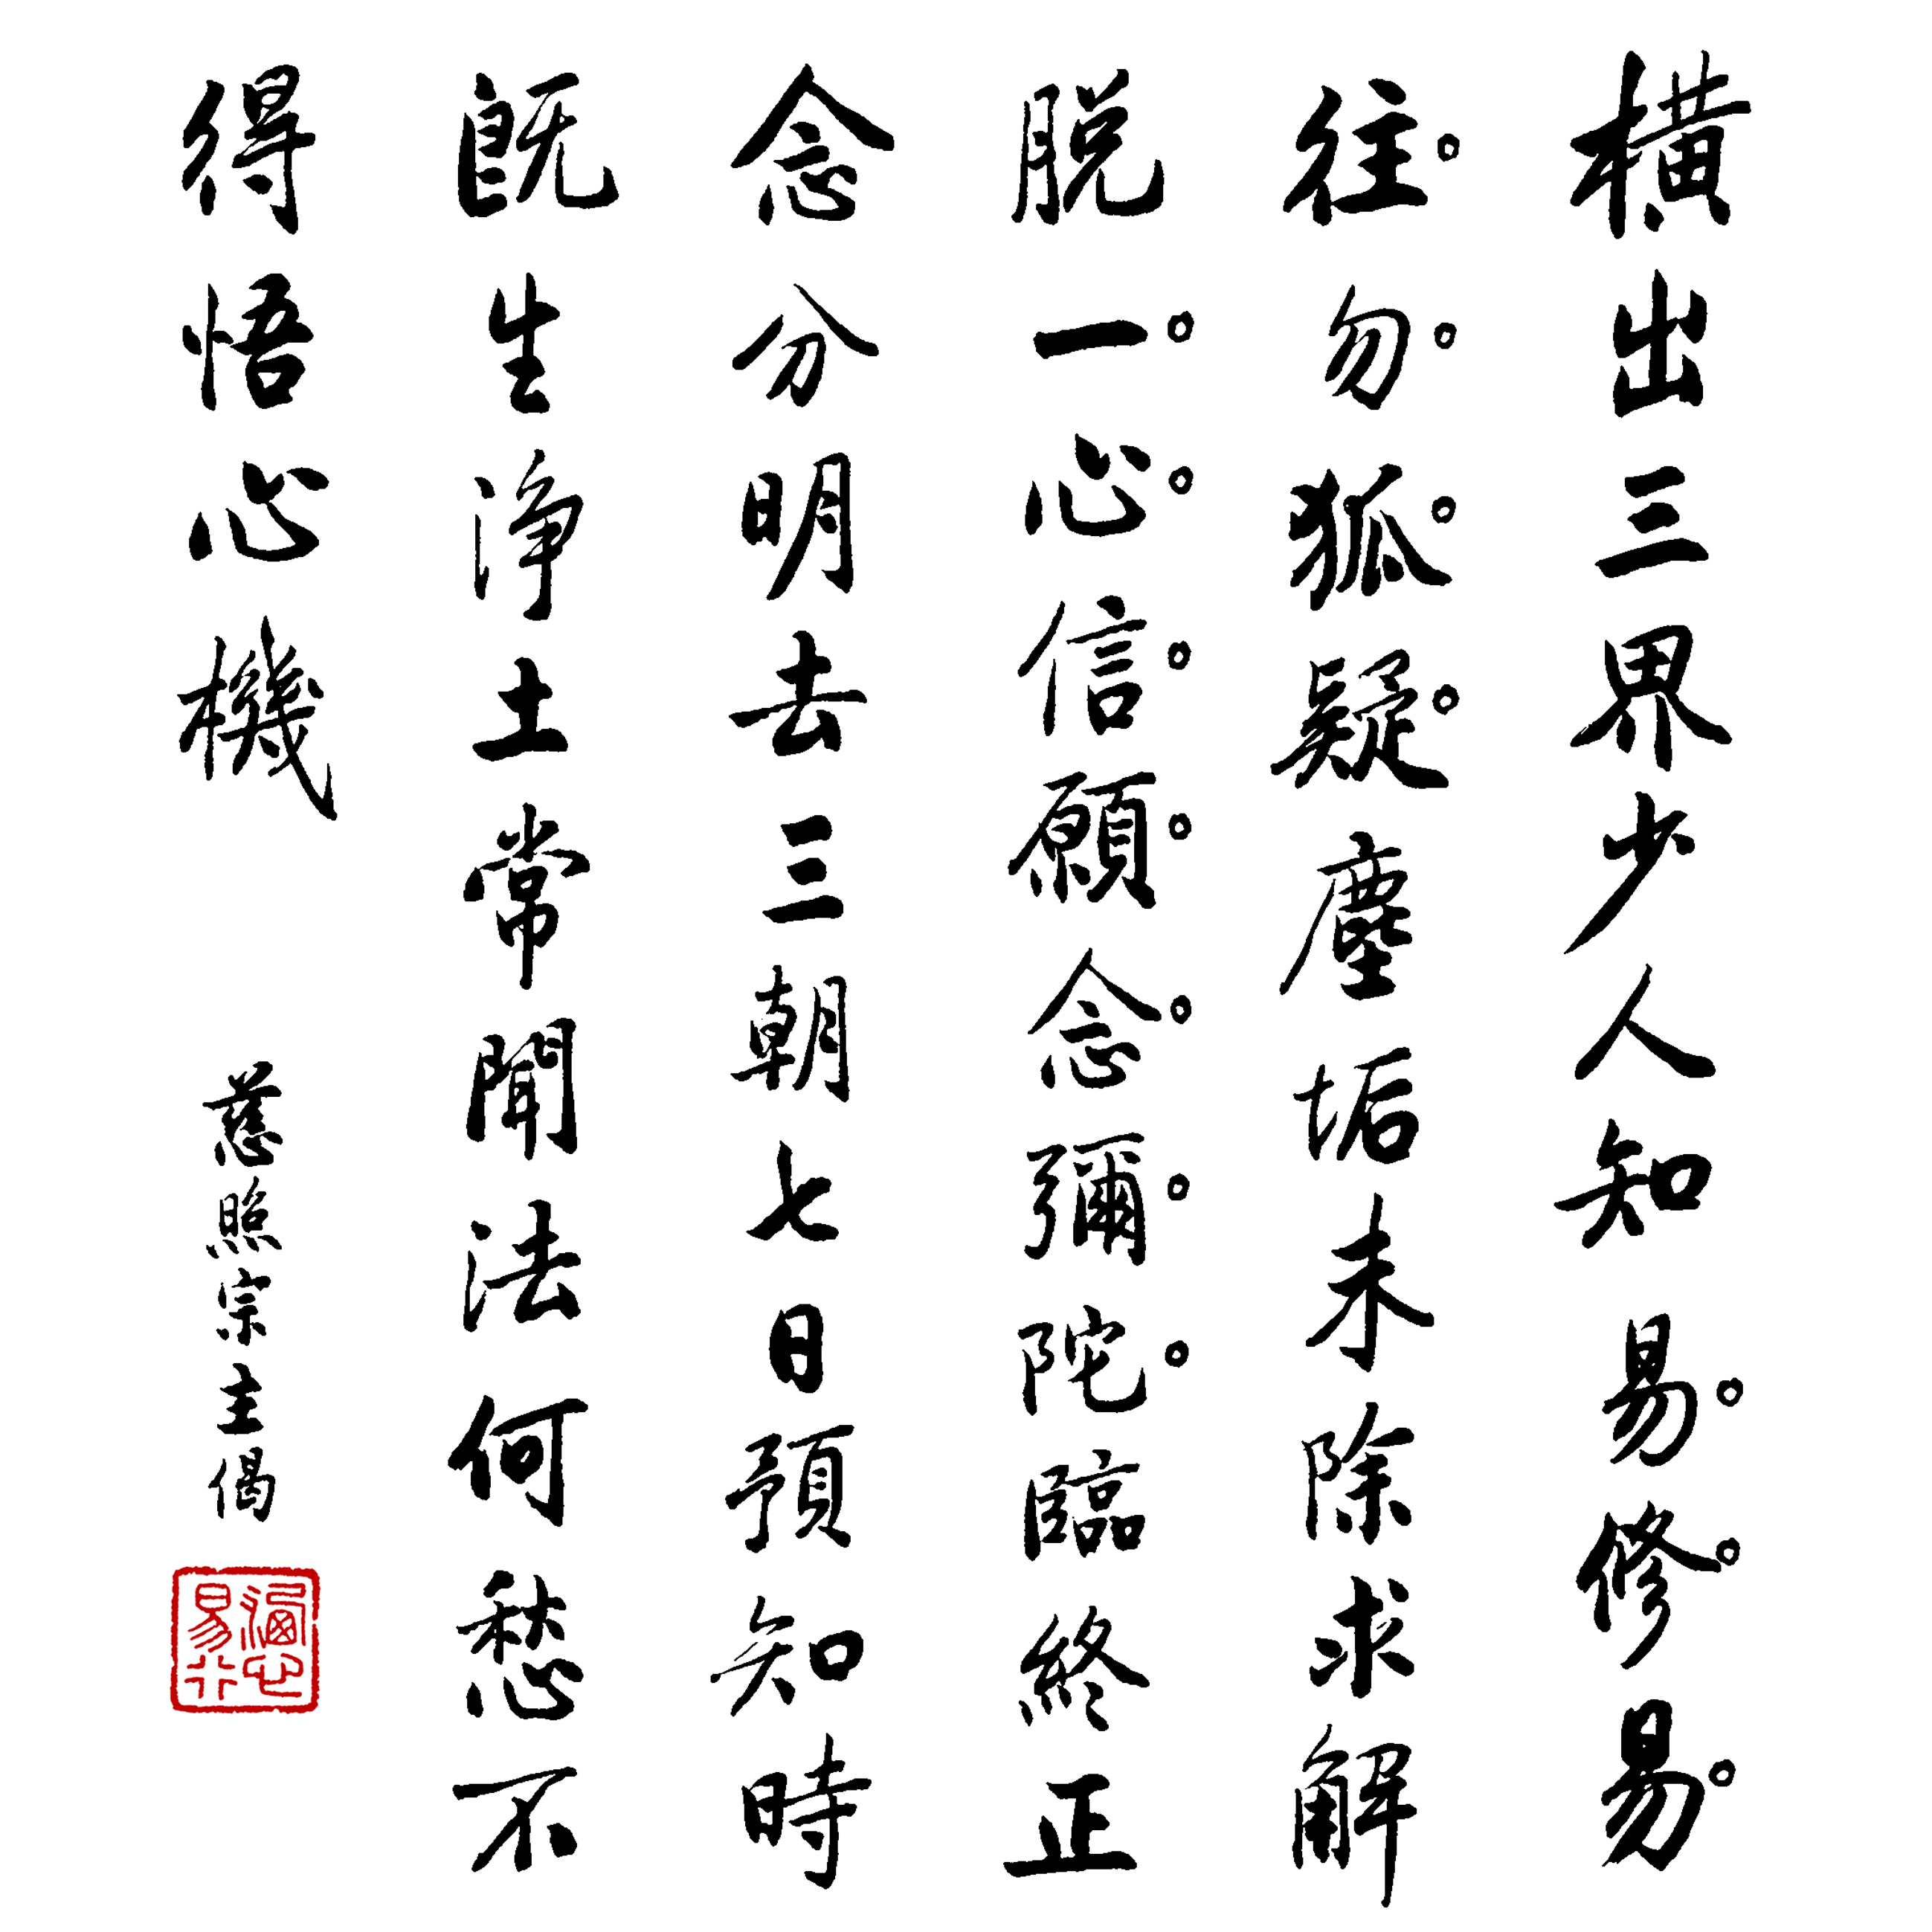 橫出三界少人知易修易
往勿狐疑塵垢未除求解
脫一心信願念彌陀臨終正
念分明去三朝七日預知時
既生淨土常聞法何愁不
得悟心機
慈照宗主偈